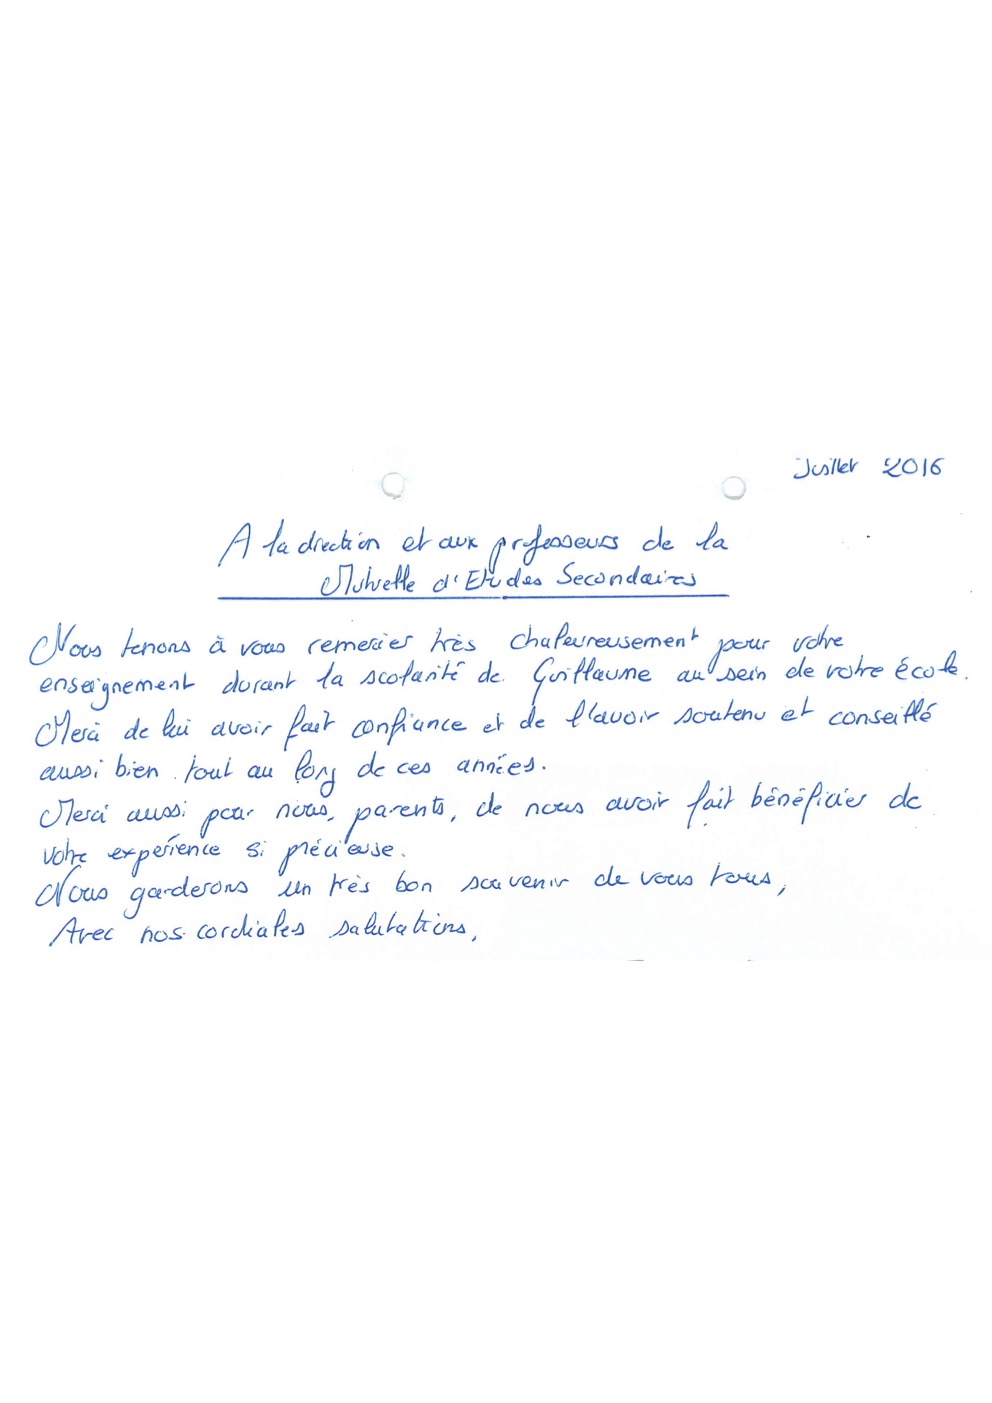 Juillet 2016
A la direction et aux professeurs de la
Mutuelle d'Etudes Secondaires
Nous tenons à vous remercier très chaleureusement pour votre
enseignement durant la scolarité de Guillaume au sein de votre école.
Merci de lui avoir fait confiance et de l'avoir soutenu et conseillé
aussi bien tout au long de ces années.
Merci aussi pour nous, parents, de nous avoir fait bénéficier de
votre expérience si précieuse.
Nous garderons un très bon souvenir de vous tous,
Avec nos cordiales salutations,